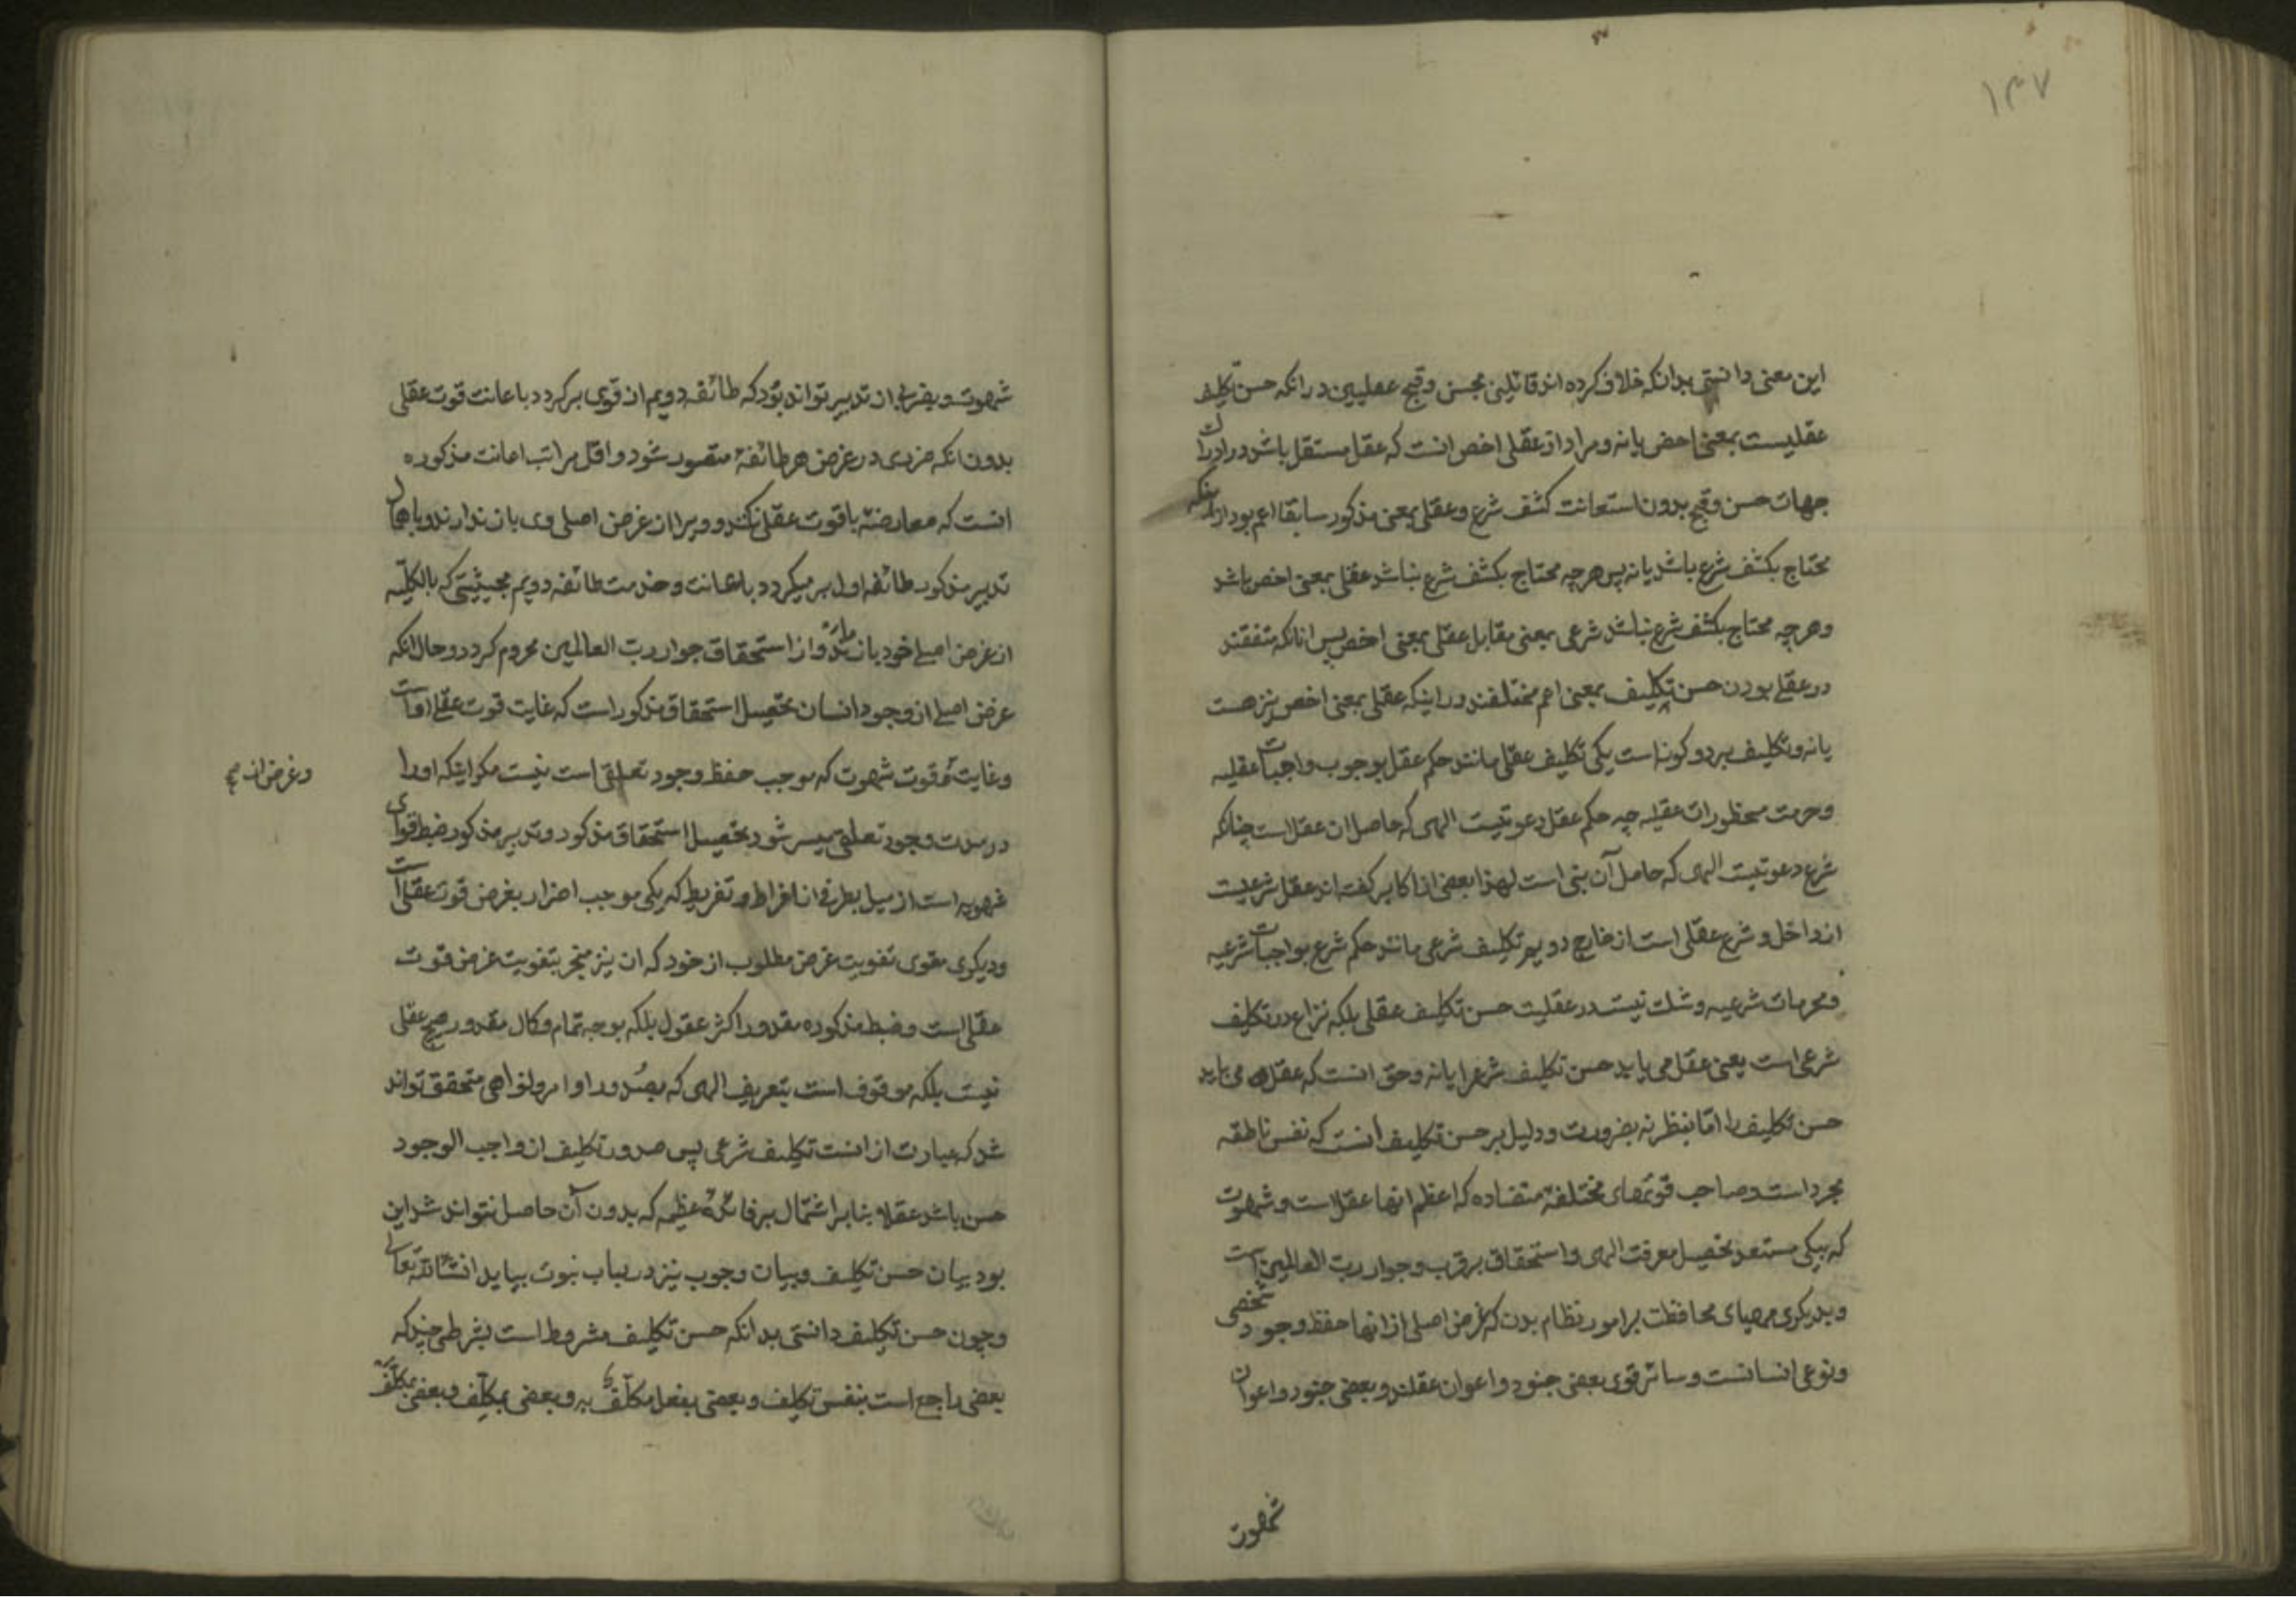 ۱۳۷
این معنی دانستی بدانکه خلاف کرده اند قائلین بحسن وقبح عقلیین درانکه حسن تکلیف
عقلیست بمعنی اخص یا نه ومراد از عقلی اخص انست که عقل مستقل باشد در ادراک
جهات حسن وقبح بدون استعانت کشف شرع وعقلی بمعنی مذکور سابقا اعم بود از انکه
محتاج بکشف شرع باشد یا نه پس هرچه محتاج بکشف شرع نباشد عقلی بمعنی اخص باشد
وهرچه محتاج بکشف شرع باشد شرعی بمعنی مقابل عقلی بمعنی اخص پس انانکه متفقند
در عقلی بودن حسن تکلیف بمعنی اعم مختلفند در اینکه عقلی بمعنی اخص نیز هست
یا نه وتکلیف بر دو کونه است یکی تکلیف عقلی مانند حکم عقل بوجوب واجبات عقلیه
وحرمت محظورات عقلیه چه حکم عقل دعوتیست الهی که حامل ان عقل است چنانکه
شرع دعوتیست الهی که حامل آن نبی است لهذا بعضی از اکابر کفته اند عقل شرعیست
از داخل وشرع عقلی است از خارج دویم تکلیف شرعی مانند حکم شرع بواجبات شرعیه
ومحرمات شرعیه وشک نیست در عقلیت حسن تکلیف عقلی بلکه نزاع در تکلیف
شرعی است یعنی عقل می یابد حسن تکلیف شرعرا یا نه وحق انست که عقل می یابد
حسن تکلیف را اما بنظر نه بضرورت ودلیل بر حسن تکلیف انست که نفس ناطقه
مجرد است وصاحب قوتهای مختلفهٔ متضاده که اعظم انها عقل است وشهوت
که بیکی مستعد تحصیل معرفت الهی واستحقاق بر قرب وجوار رب العالمین است
وبدیکری مهیای محافظت بر امور نظام بدن که غرض اصلی از انها حفظ وجود شخصی
ونوعی انسانست وسائر قوی بعضی جنود واعوان عقلند وبعضی جنود واعوان
شهوت
شهوت وبضربی از تدبیر تواند بود که طائفه دویم از قوی بر کردد باعانت قوت عقلی
بدون انکه ضرری در غرض هر طائفهٔ متصور شود واقل مراتب اعانت مذکوره
انست که معارضهٔ با قوت عقلی نکند وویرا از غرض اصلی وی باز ندارند وباهمال
تدبیر مذکور طائفه اول بر میکردد باعانت وخدمت طائفه دویم بحیثیتی که بالکلیه
از غرض اصلی خود باز ماند واز استحقاق جوار رب العالمین محروم کردد وحال انکه
غرض اصلی از وجود انسان تحصیل استحقاق مذکور است که غایت قوت عقلی است
وغایت قوت شهوت که موجب حفظ وجود تعلقی است نیست مکر اینکه اورا
وغرض ان صح
در مدت وجود تعلقی میسر شود تحصیل استحقاق مذکور وتدبیر مذکور ضبط قوای
شهویه است از میل بطرفی افراط وتفریط که یکی موجب اضرار بغرض قوت عقلی است
ودیکری مقوی تفویت غرض مطلوب از خود که ان نیز منجر بتفویت غرض قوت
عقلی است وضبط مذکوره مقدور اکثر عقول بلکه بوجه تمام وکمال مقدور هیچ عقلی
نیست بلکه موقوف است بتعریف الهی که بصدور اوامر ونواهی متحقق تواند
شد که عبارت از انست تکلیف شرعی پس صدور تکلیف از واجب الوجود
حسن باشد عقلا بنابر اشتمال بر فائدهٔ عظیمه که بدون آن حاصل نتواند شد این
بود بیان حسن تکلیف وبیان وجوب نیز در باب نبوت بیاید انشاالله تعالی
وچون حسن تکلیف دانستی بدانکه حسن تکلیف مشروط است بشرطی چند که
بعضی راجع است بنفس تکلیف وبعضی بفعل مکلف به وبعضی بمکلف وبعضی بمکلف